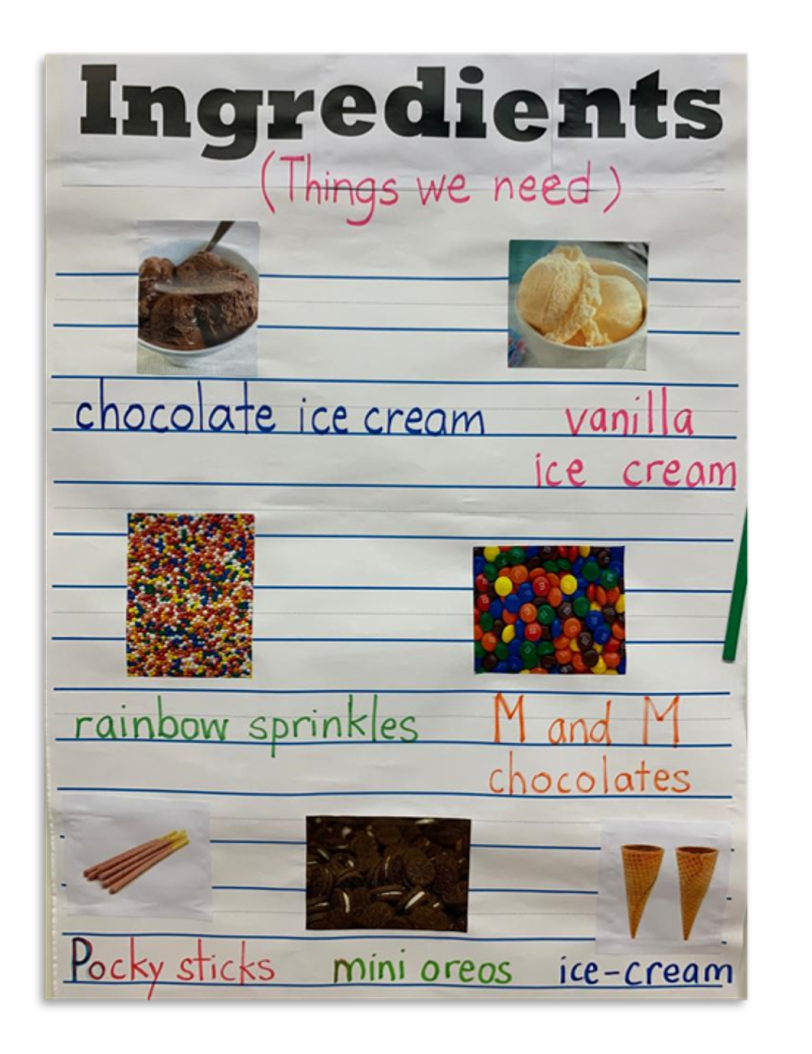 Ingredients
(Things we need)
chocolate ice cream
vanilla
ice cream
rainbow sprinkles
M and M
chocolates
Pocky sticks
mini oreos
ice-cream